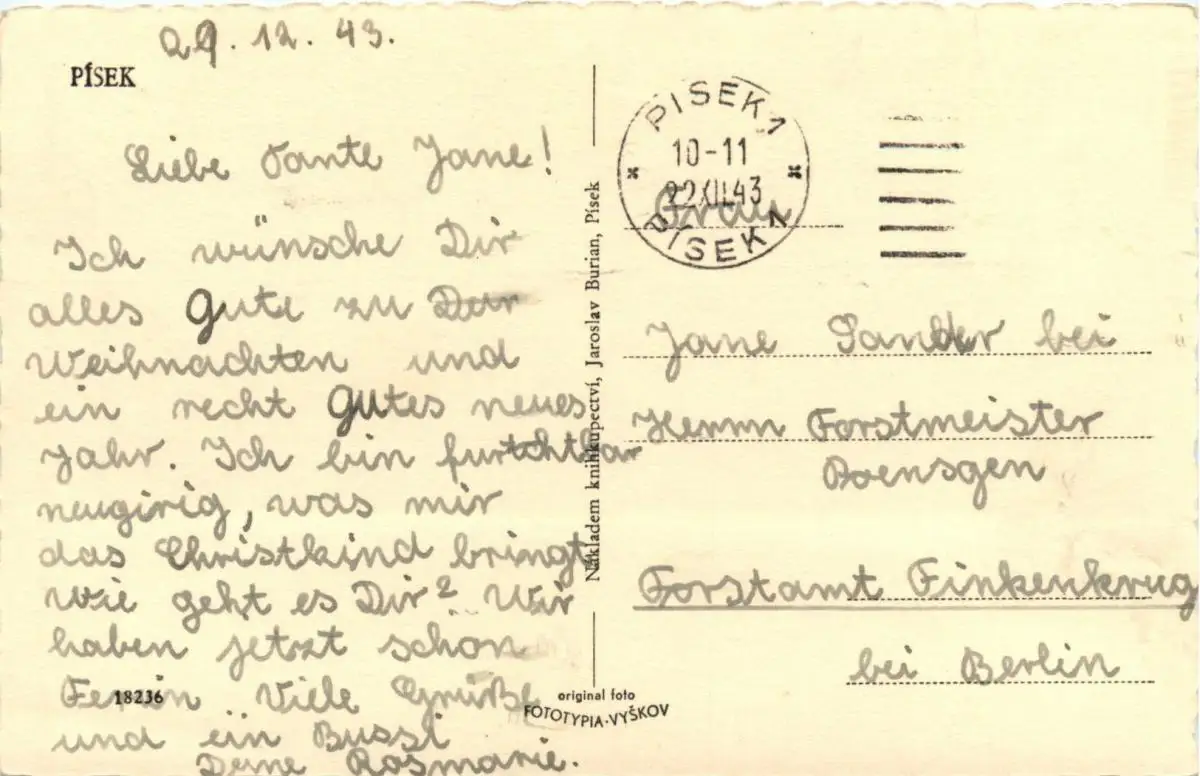 29.12.43.
PÍSEK
Liebe Tante Jane!
Ich wünsche Dir
alles gute zu Dur
Weihnachten und
ein recht gutes neues
Jahr. Ich bin furtchtbar
neugirig, was mir
das Christkind bringt
wie geht es Dir? Wir
haben jetzt schon
Ferin Viele Grüße
und ein Bussi
Deine Rosmarie.
18236
Nákladem knihkupectví, Jaroslav Burian, Písek
original foto
FOTOTYPIA-VYŠKOV
PISEK 1
10-11
22XII.43
PÍSEK 1
Frau
Jane Sander bei
Herrn Forstmeister
Boensgen
Forstamt Finkenkrug
bei Berlin